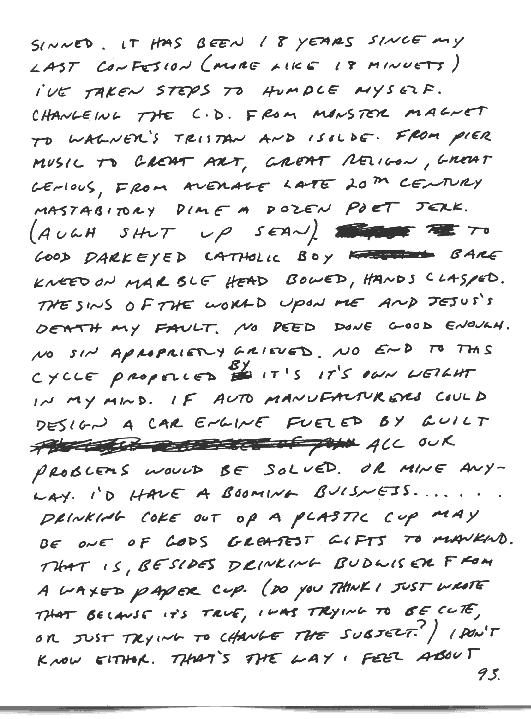 SINNED. IT HAS BEEN 18 YEARS SINCE MY
LAST CONFESION (MORE LIKE 18 MINUETS)
I'VE TAKEN STEPS TO HUMDLE MYSELF.
CHANGEING THE C.D. FROM MONSTER MAGNET
TO WAGNER'S TRISTAN AND ISOLDE. FROM PIER
MUSIC TO GREAT ART, GREAT RELIGON, GREAT
GENIOUS, FROM AVERAGE LATE 20TH CENTURY
MASTABITORY DIME A DOZEN POET JERK.
(AUGH SHUT UP SEAN). TO
GOOD DARKEYED CATHOLIC BOY BARE
KNEED ON MARBLE HEAD BOWED, HANDS CLASPED.
THE SINS OF THE WORLD UPON ME AND JESUS'S
DEATH MY FAULT. NO DEED DONE GOOD ENOUGH.
NO SIN APROPRIETLY GRIEVED. NO END TO THIS
CYCLE PROPELLED BY IT'S IT'S OWN WEIGHT
IN MY MIND. IF AUTO MANUFACTURERS COULD
DESIGN A CAR ENGINE FUELED BY GUILT
ALL OUR
PROBLEMS WOULD BE SOLVED. OR MINE ANY-
WAY. I'D HAVE A BOOMING BUISNESS.......
DRINKING COKE OUT OF A PLASTIC CUP MAY
BE ONE OF GODS GREATEST GIFTS TO MANKIND.
THAT IS, BESIDES DRINKING BUDWISER FROM
A WAXED PAPER CUP. (DO YOU THINK I JUST WROTE
THAT BECAUSE IT'S TRUE, I WAS TRYING TO BE CUTE,
OR JUST TRYING TO CHANGE THE SUBJECT?) I DON'T
KNOW EITHOR. THAT'S THE WAY I FEEL ABOUT
93.